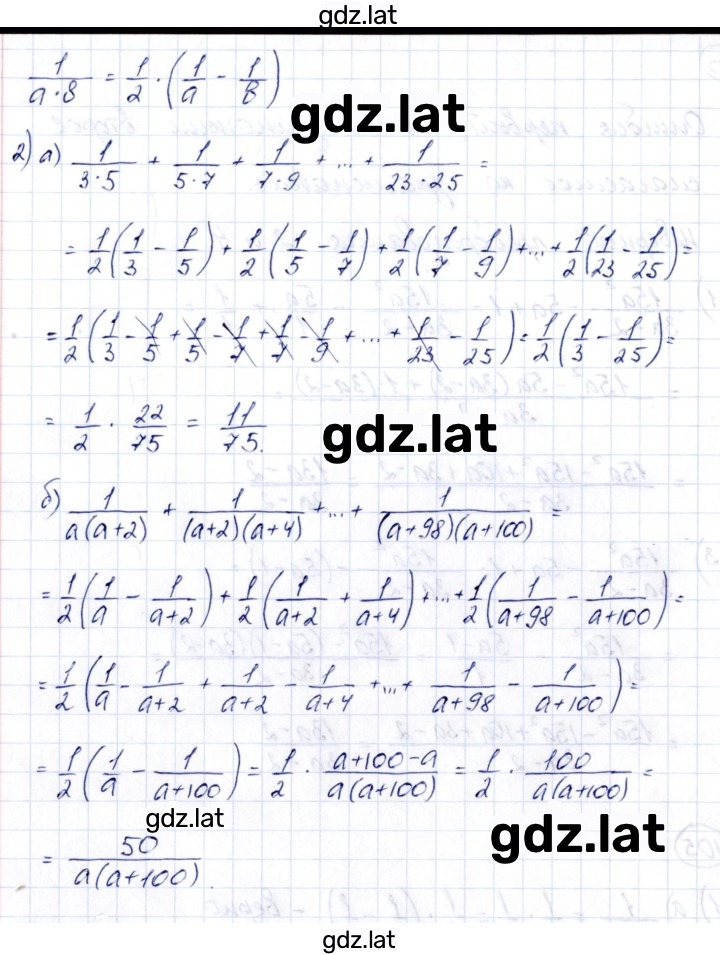 gdz.lat
1/(a·в) = 1/2 · (1/a - 1/в)
gdz.lat
2) а) 1/(3·5) + 1/(5·7) + 1/(7·9) + ... + 1/(23·25) =
= 1/2(1/3 - 1/5) + 1/2(1/5 - 1/7) + 1/2(1/7 - 1/9) + ... + 1/2(1/23 - 1/25) =
= 1/2(1/3 - 1/5 + 1/5 - 1/7 + 1/7 - 1/9 + ... + 1/23 - 1/25) = 1/2(1/3 - 1/25) =
= 1/2 · 22/75 = 11/75.
gdz.lat
б) 1/(a(a+2)) + 1/((a+2)(a+4)) + ... + 1/((a+98)(a+100)) =
= 1/2(1/a - 1/(a+2)) + 1/2(1/(a+2) + 1/(a+4)) + ... + 1/2(1/(a+98) - 1/(a+100)) =
= 1/2(1/a - 1/(a+2) + 1/(a+2) - 1/(a+4) + ... + 1/(a+98) - 1/(a+100)) =
= 1/2(1/a - 1/(a+100)) = 1/2 · (a+100-a)/(a(a+100)) = 1/2 · 100/(a(a+100)) =
gdz.lat
gdz.lat
= 50/(a(a+100)).
gdz.lat